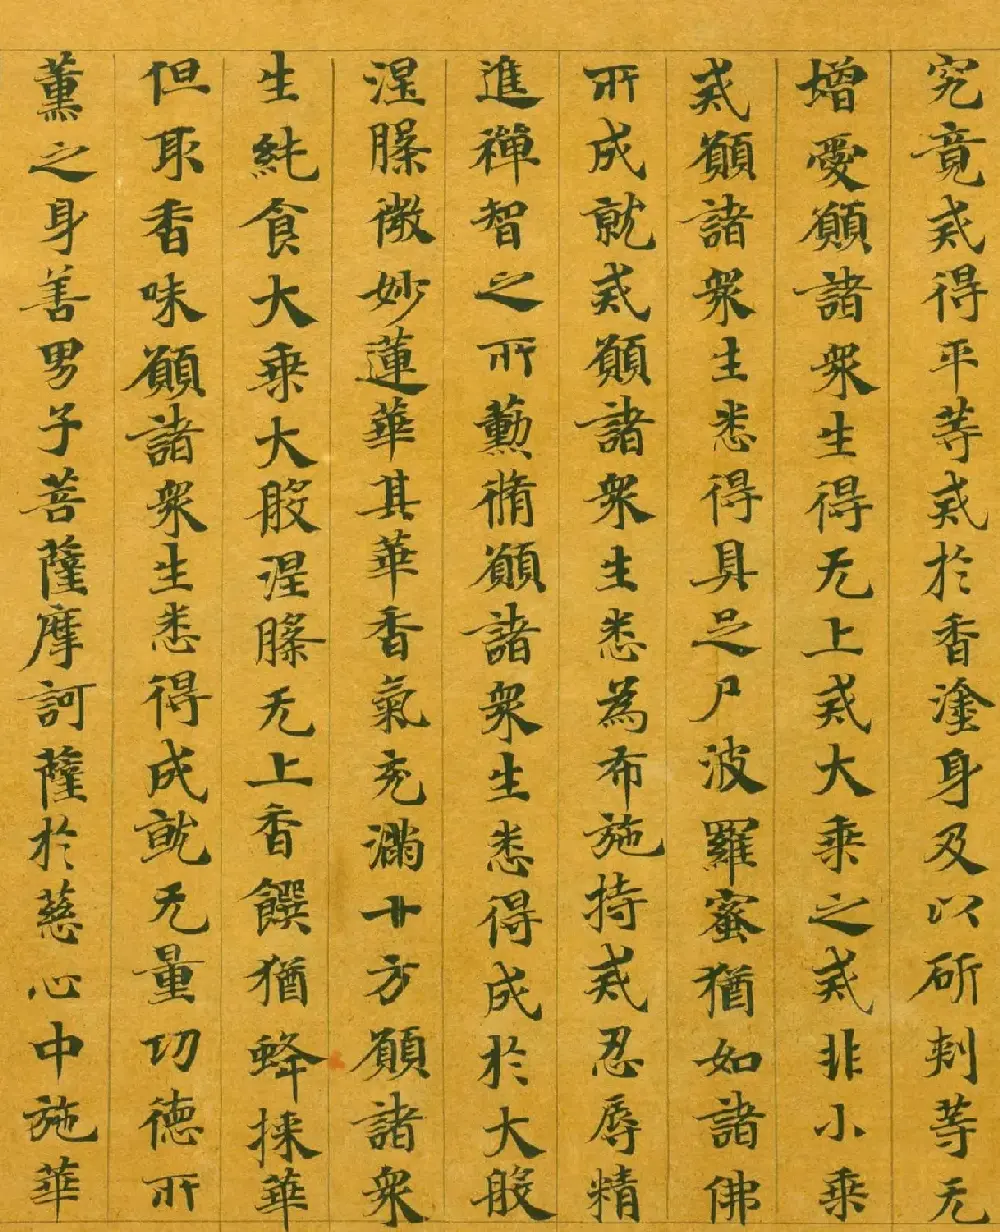 究竟戒得平等戒於香塗身及以斫刺等无
增愛願諸衆生得无上戒大乘之戒非小乘
戒願諸衆生悉得具足尸波羅蜜猶如諸佛
所成就戒願諸衆生悉為布施持戒忍辱精
進禪智之所勳脩願諸衆生悉得成於大般
涅槃微妙蓮華其華香氣充滿十方願諸衆
生純食大乘大般涅槃无上香饌猶蜂採華
但取香味願諸衆生悉得成就无量功德所
薰之身善男子菩薩摩訶薩於慈心中施華